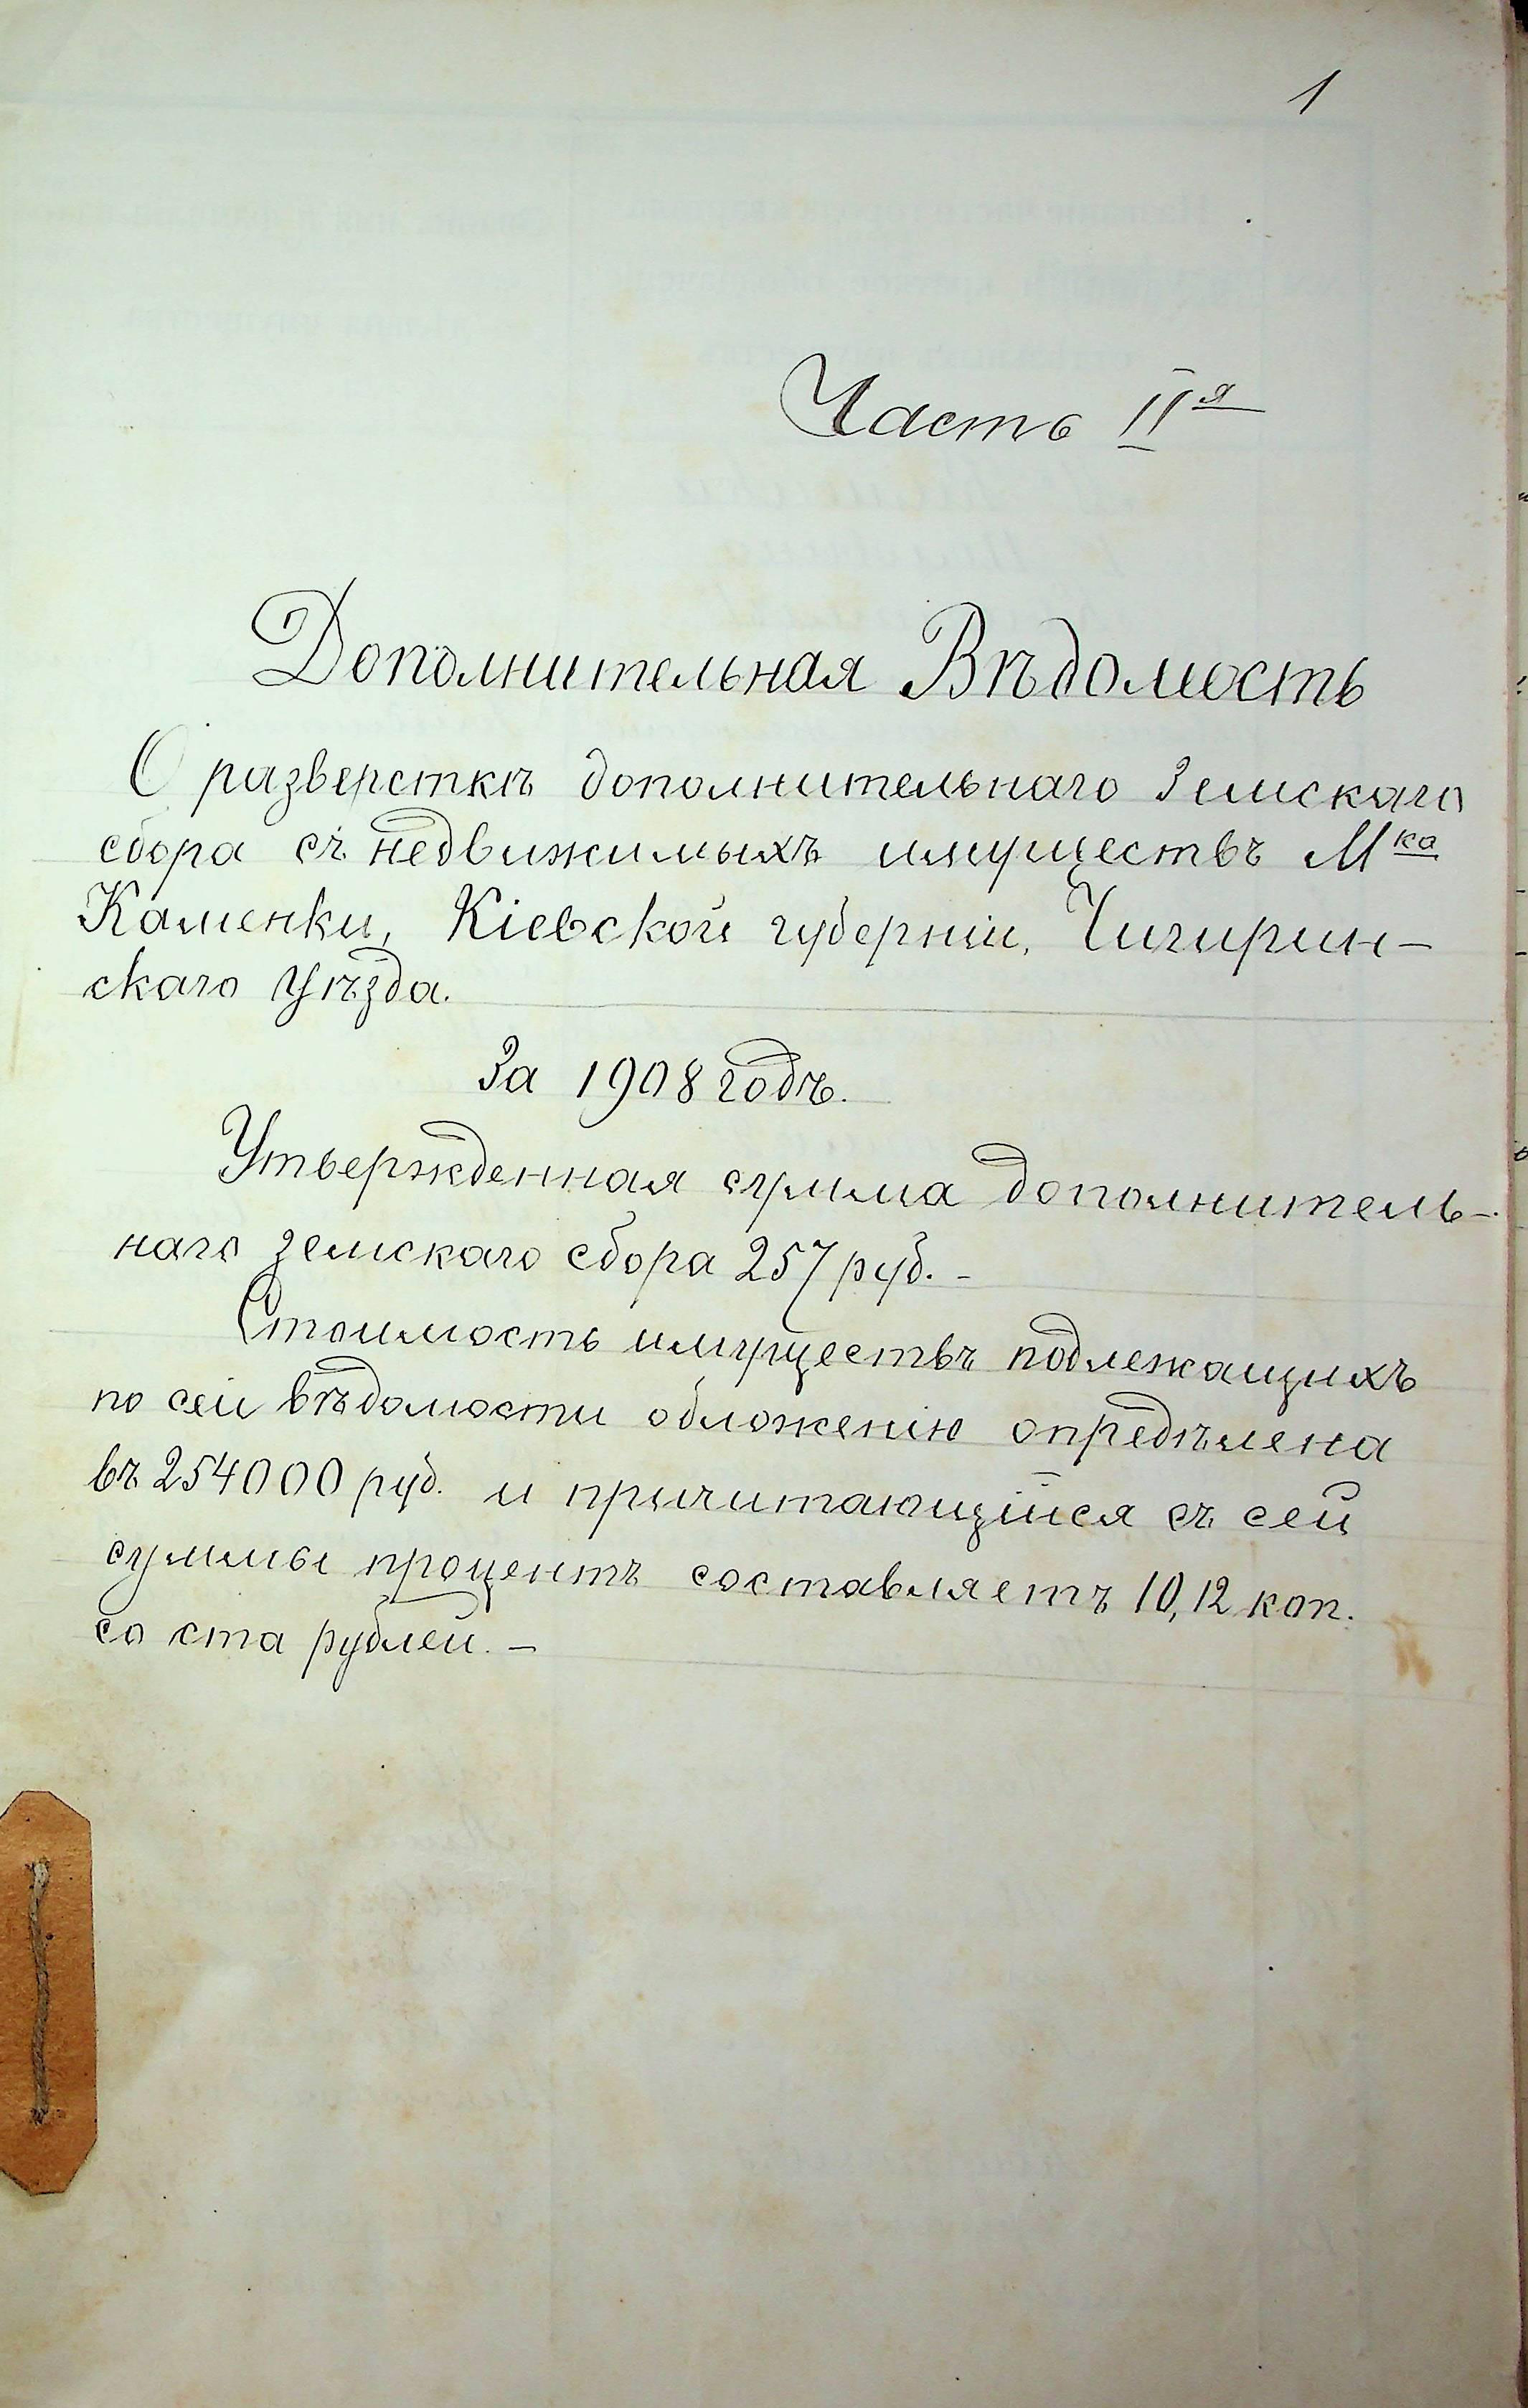 1
Часть IIя
Дополнительная Вѣдомость
О разверсткѣ дополнительнаго Земскаго
сбора съ недвижимыхъ имуществъ Мка
Каменки, Кіевской губерніи, Чигирин-
скаго Уѣзда.
За 1908 годъ.
Утвержденная сумма дополнитель-
наго земскаго сбора 257 руб. -
Стоимость имуществъ подлежащихъ
по сей вѣдомости обложенію опредѣлена
въ 254000 руб. и причитающійся съ сей
суммы процентъ составляетъ 10,12 коп.
со ста рублей. -